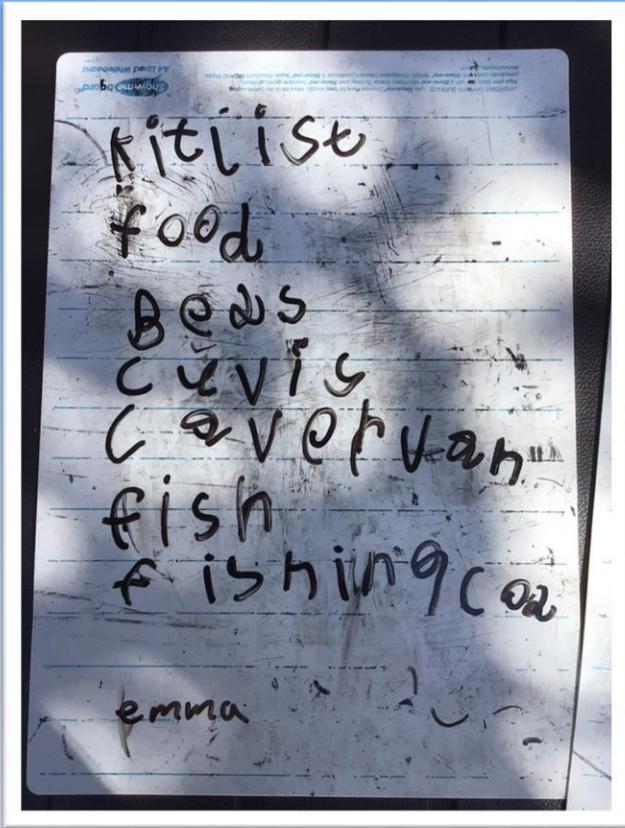 Show-me board
A4 Lined Whiteboard
kitlist
food
Beas
cuvis
cavervan
fish
fishing coa
emma